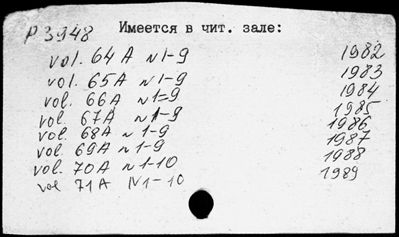 Имеется в чит. зале:
Р 3948
vol. 64A N1-9 1982
vol. 65A N1-9 1983
vol. 66A N1-9 1984
vol. 67A N1-9 1985
vol. 68A N1-9 1986
vol. 69A N1-9 1987
vol. 70A N1-10 1988
vol 71A N1-10 1989